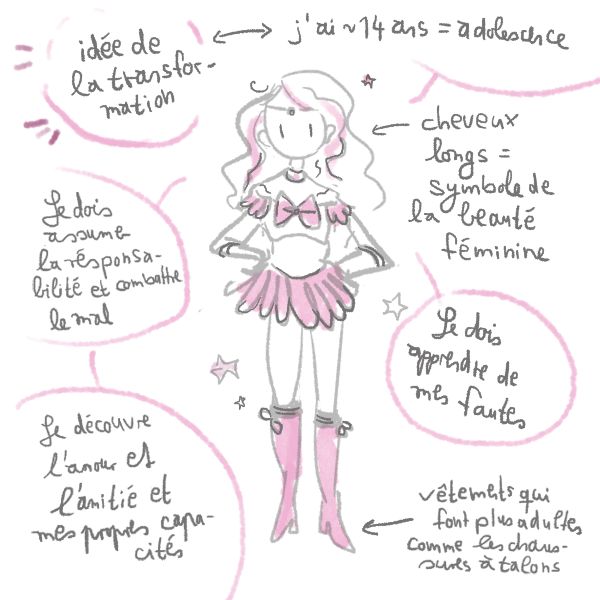 idée de
la transfor-
mation
j'ai ~14 ans = adolescence
cheveux
longs =
symbole de
la beauté
féminine
Je dois
assumer
la responsa-
bilité et combattre
le mal
Je dois
apprendre de
mes fautes
Je découvre
l'amour et
l'amitié et
mes propres capa-
cités
vêtements qui
font plus adultes
comme les chaus-
sures à talons